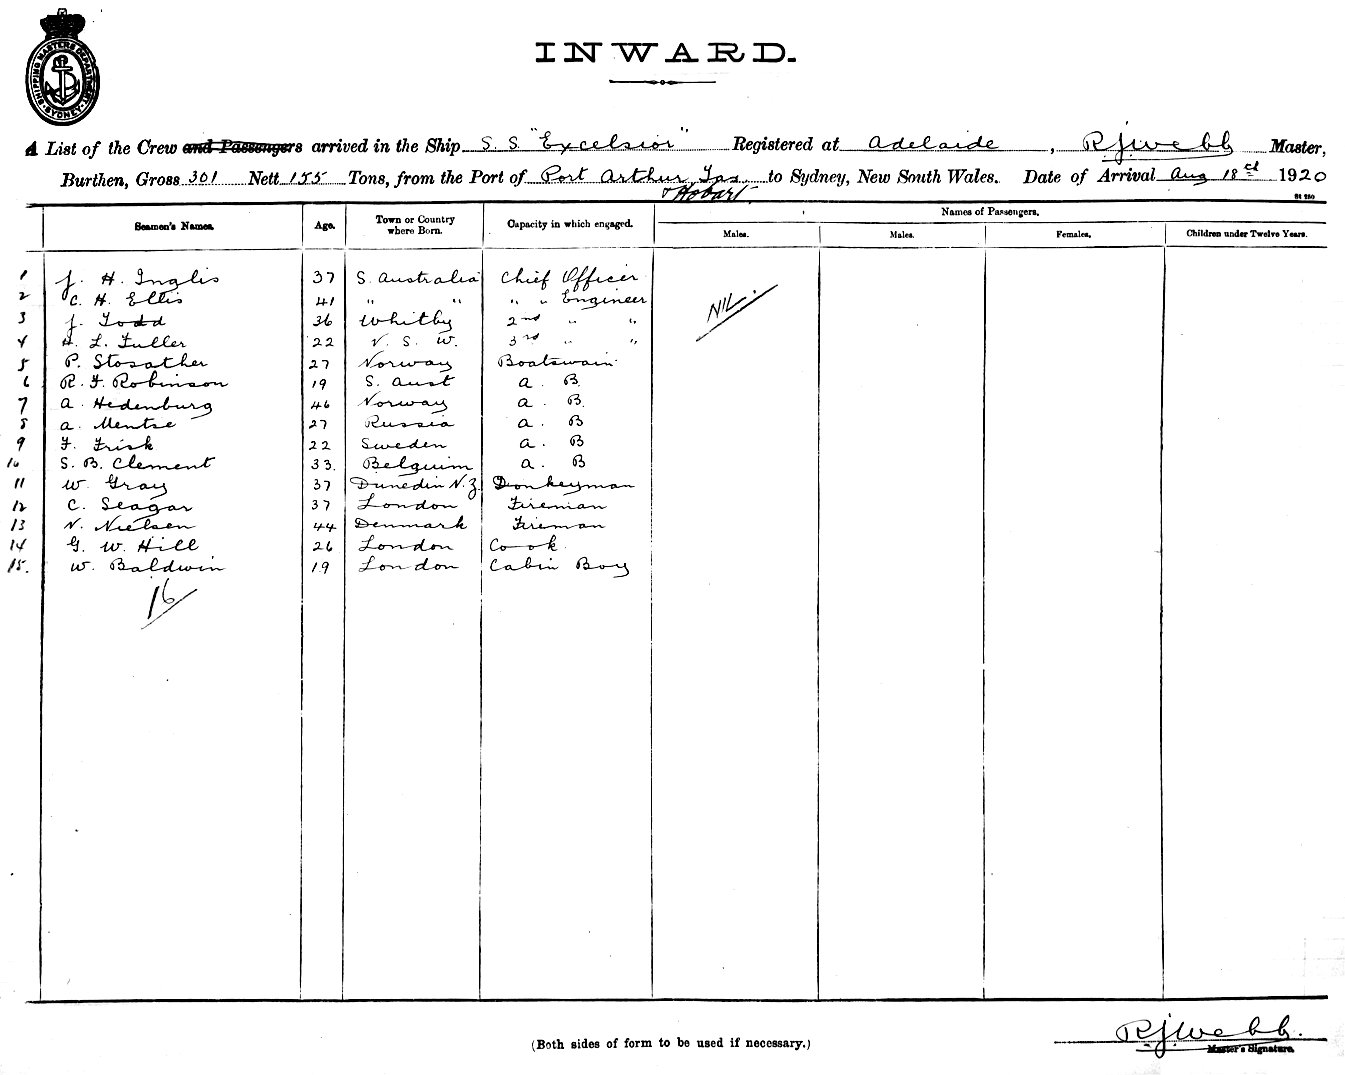 SHIPPING MASTERS DEPARTMENT SYDNEY
INWARD.
A List of the Crew and Passengers arrived in the Ship S. S. "Excelsior" Registered at Adelaide, R J Webb Master,
Burthen, Gross 301 Nett 155 Tons, from the Port of Port Arthur Tas to Sydney, New South Wales. Date of Arrival Aug 18 1920
Hobart
Names of Passengers.
Seamen's Names. Age. Town or Country where Born. Capacity in which engaged. Males. Males. Females. Children under Twelve Years.
1 J. H. Inglis 37 S. Australia Chief Officer
2 C. H. Ellis 41 " " " " Engineer
NIL.
3 J. Todd 36 Whitby 2nd " "
4 H. L. Fuller 22 N. S. W. 3rd " "
5 P. Stosather 27 Norway Boatswain
6 R. F. Robinson 19 S. Aust A. B.
7 A. Hedenburg 46 Norway A. B.
8 A. Mentse 27 Russia A. B
9 F. Frisk 22 Sweden A. B
10 S. B. Clement 33. Belguim A. B
11 W. Gray 37 Dunedin N.Z. Donkeyman
12 C. Seagar 37 London Fireman
13 N. Nielsen 44 Denmark Fireman
14 G. W. Hill 26 London Cook
15. W. Baldwin 19 London Cabin Boy
16
R J Webb.
Master's Signature.
(Both sides of form to be used if necessary.)